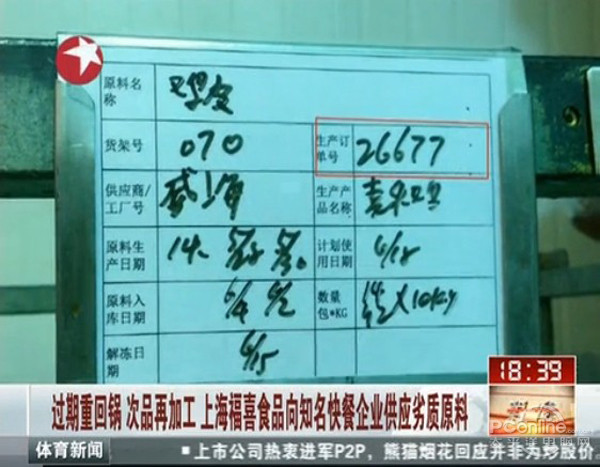 原料名称
鸡皮
货架号 070 生产订单号 26677
供应商/工厂号 威海 生产产品名称
原料生产日期 14. 计划使用日期 6/18
原料入库日期 6/4 数量包*KG X10Kg
解冻日期 6/15
18:39
过期重回锅 次品再加工 上海福喜食品向知名快餐企业供应劣质原料
PConline
太平洋电脑网
体育新闻 ■上市公司热衷进军P2P，熊猫烟花回应并非为炒股价